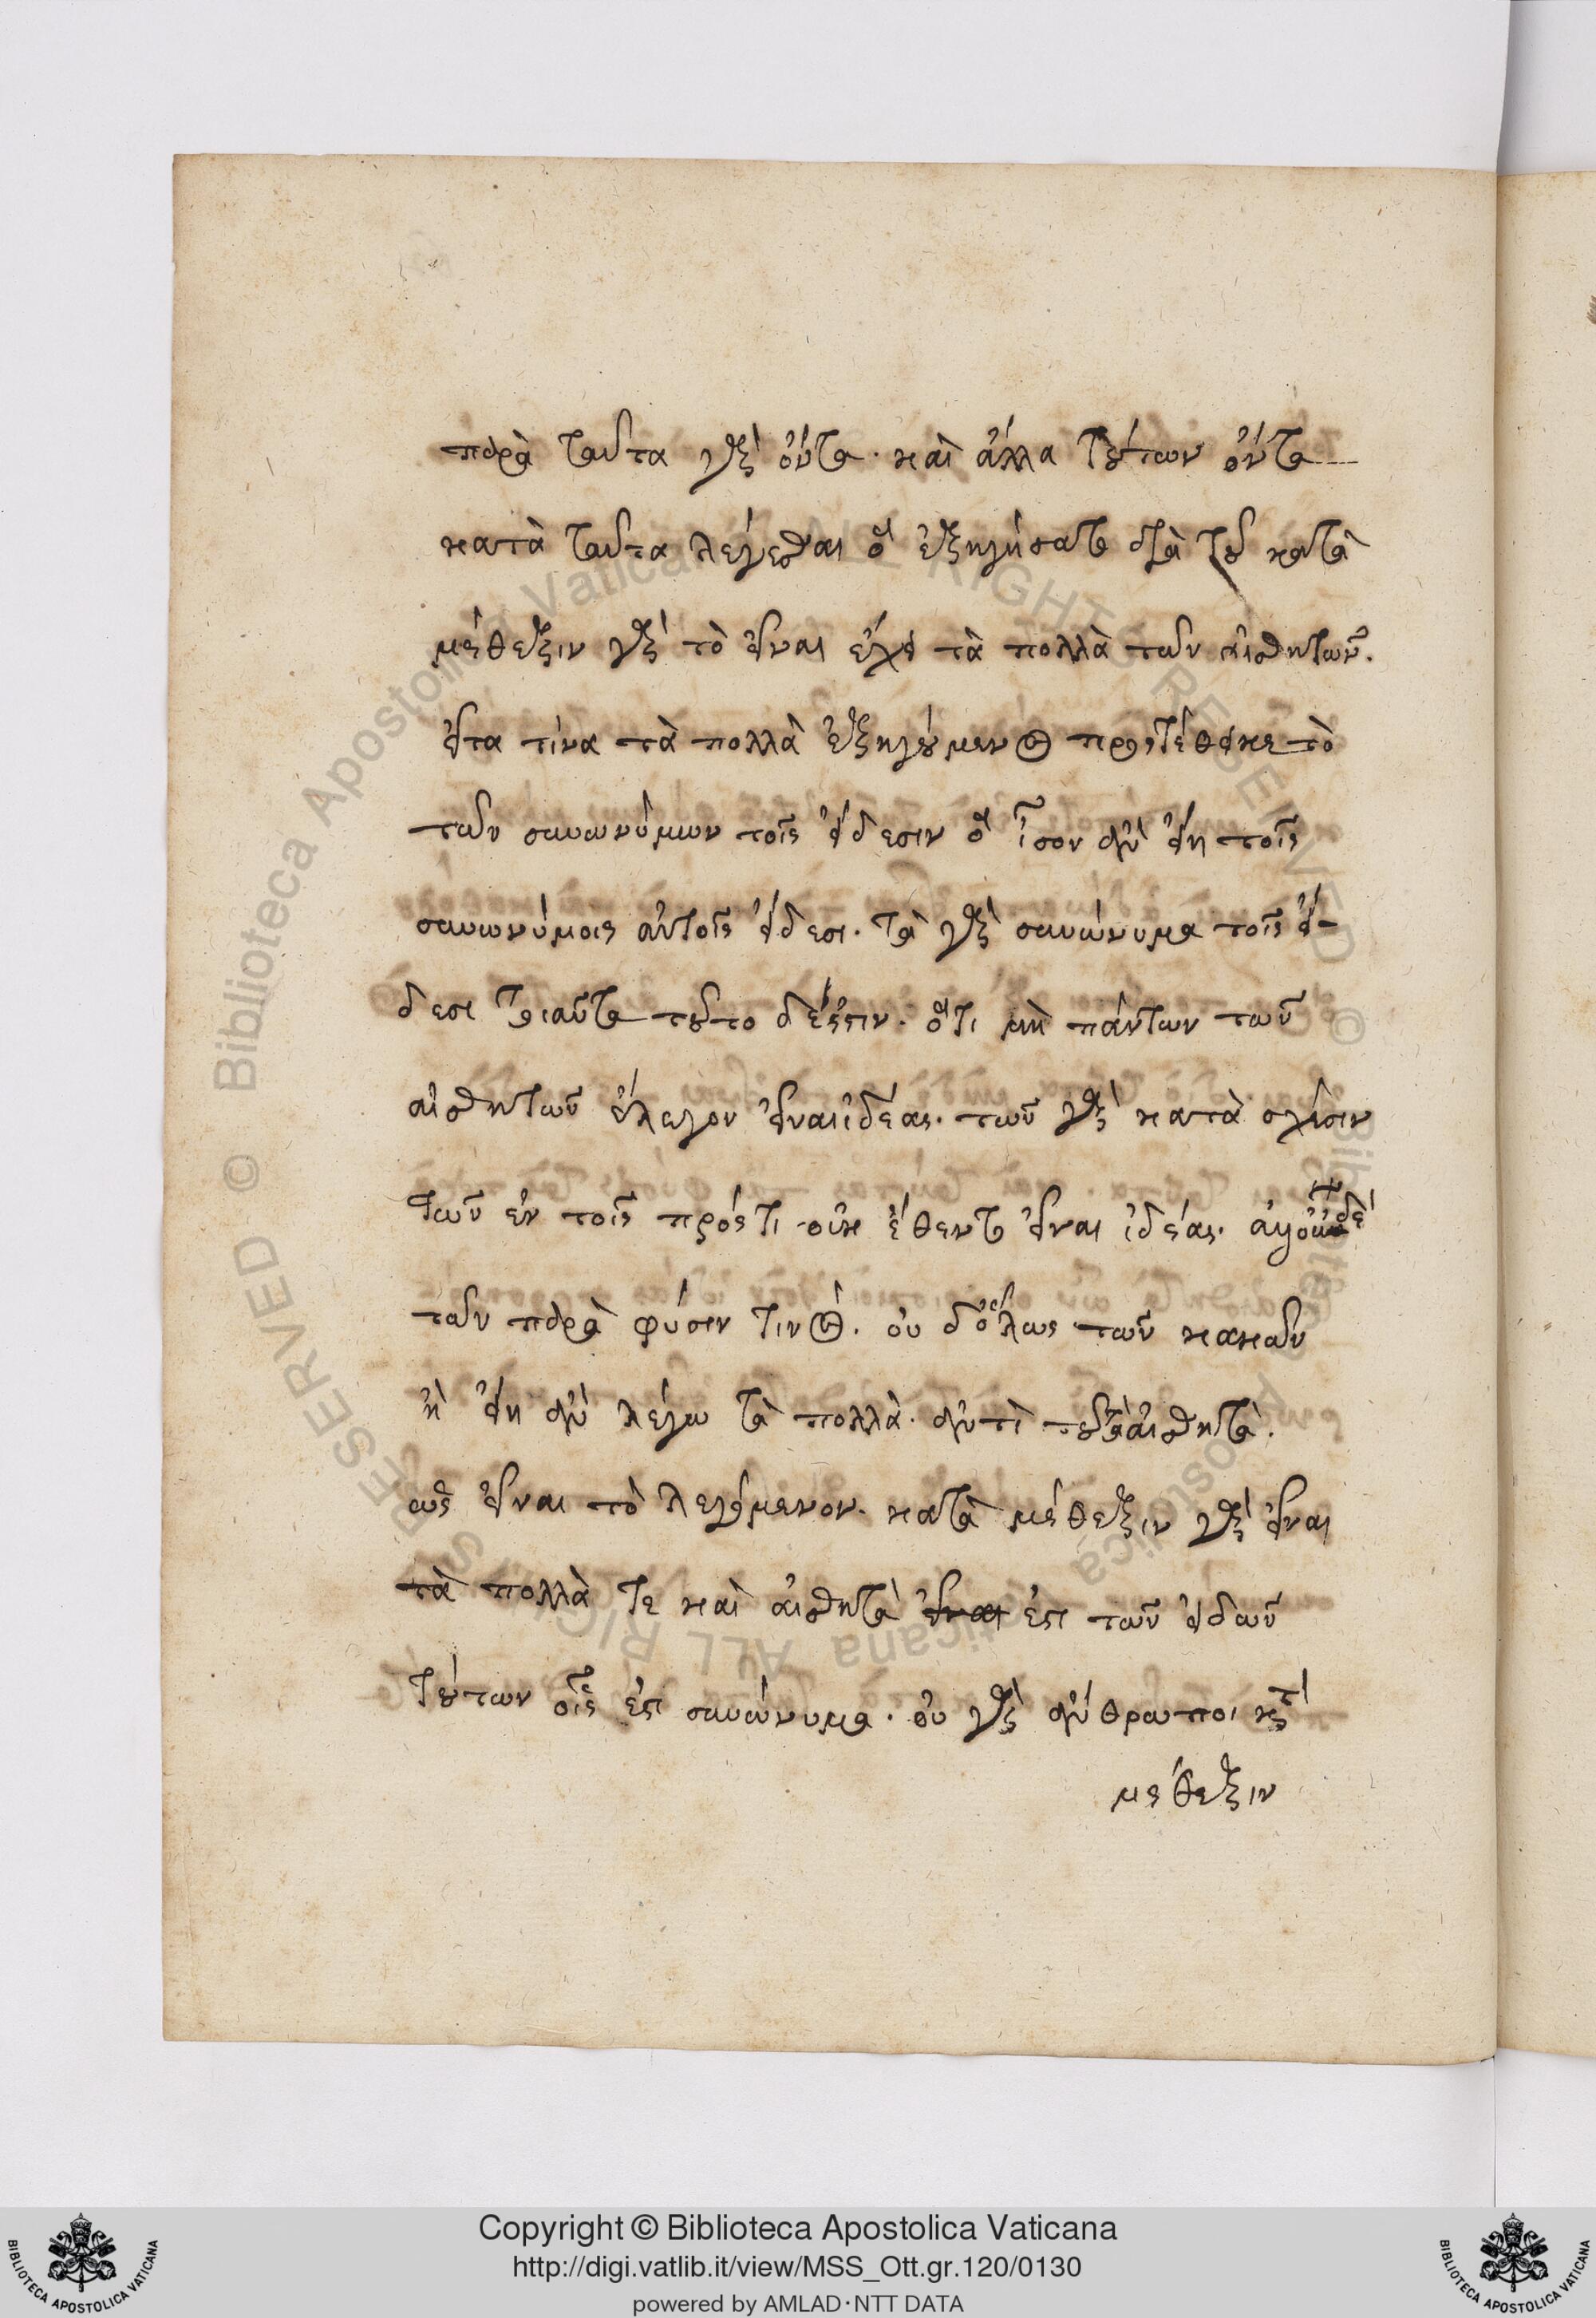 παρὰ ταῦτα γὰρ ὄντα· καὶ ἄλλα τούτων ὄντα
κατὰ ταῦτα λέγεσθαι ὃ ἐξηγήσατο διὰ τοῦ κατὰ
μέθεξιν γὰρ τὸ εἶναι ἔχει τὰ πολλὰ τῶν αἰσθητῶν.
εἶτα τίνα τὰ πολλὰ ἐξηγούμενος προστέθεικε τὸ
τῶν συνωνύμων τοῖς εἴδεσιν ὃ ἴσον ἂν εἴη τοῖς
συνωνύμοις αὐτοῖς εἴδεσι. τὰ γὰρ συνώνυμα τοῖς εἴ-
δεσι τοιαῦτα τοῦτο δέ ἐστιν. ὅτι μὴ πάντων τῶν
αἰσθητῶν ἔλεγον εἶναι ἰδέας. τῶν γὰρ κατὰ σχέσιν
τῶν ἐν τοῖς πρός τι οὐκ ἔθεντο εἶναι ἰδέας. δὲ
τῶν παρὰ φύσιν τινός. οὐ δ' ὅλως τῶν κακῶν
ἢ εἴη ἂν λέγω τὰ πολλὰ. ἀντὶ τοῦ τὰ αἰσθητά.
ὡς εἶναι τὸ λεγόμενον. κατὰ μέθεξιν γὰρ εἶναι
τὰ πολλὰ τε καὶ αἰσθητὰ εἶναι ἐστι τῶν εἰδῶν
τούτων οἷς ἐστι συνώνυμα. οὐ γὰρ ἄνθρωποι κατὰ
μέθεξιν
Copyright © Biblioteca Apostolica Vaticana
http://digi.vatlib.it/view/MSS_Ott.gr.120/0130
powered by AMLAD·NTT DATA
BIBLIOTECA APOSTOLICA VATICANA
BIBLIOTECA APOSTOLICA VATICANA